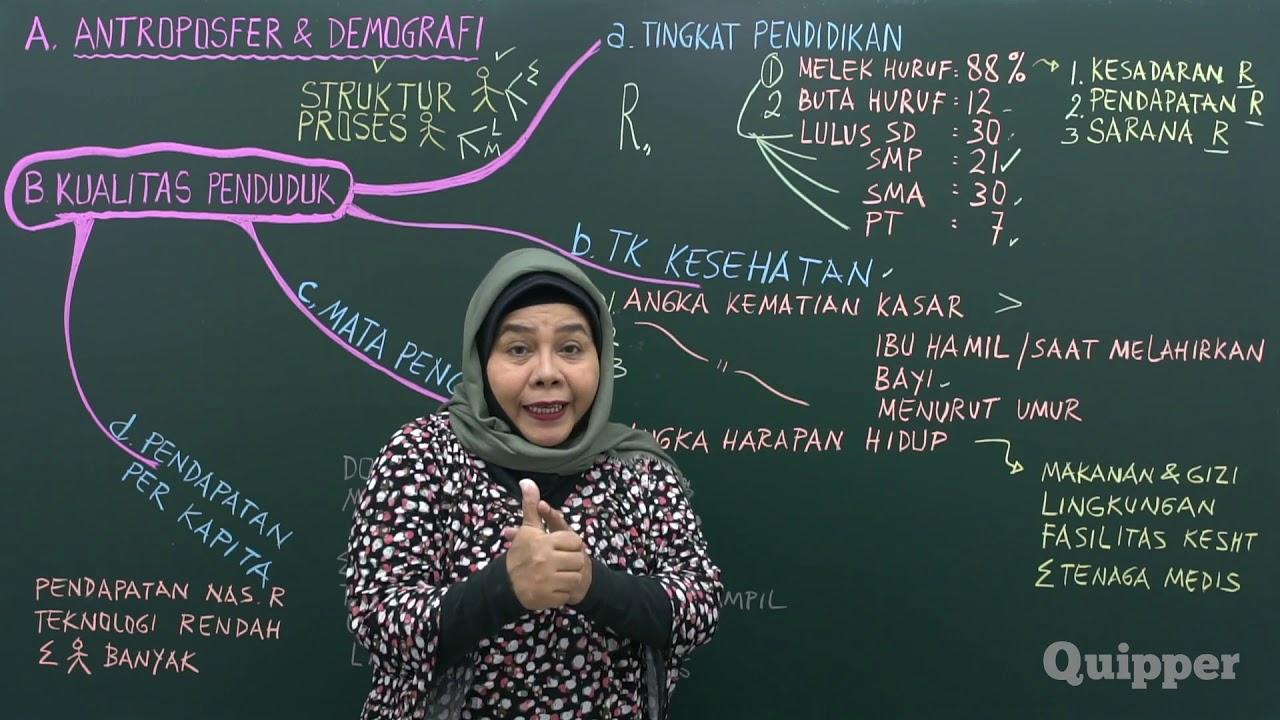 A. ANTROPOSFER & DEMOGRAFI
STRUKTUR
PROSES
L
M
B. KUALITAS PENDUDUK
a. TINGKAT PENDIDIKAN
R
1 MELEK HURUF: 88%
2 BUTA HURUF: 12
LULUS SD : 30
SMP : 21
SMA : 30
PT : 7
1. KESADARAN R
2. PENDAPATAN R
3 SARANA R
b. TK KESEHATAN
1. ANGKA KEMATIAN KASAR >
2
3
"
IBU HAMIL / SAAT MELAHIRKAN
BAYI
MENURUT UMUR
HARAPAN HIDUP
MAKANAN & GIZI
LINGKUNGAN
FASILITAS KESHT
Σ TENAGA MEDIS
c. MATA PENC
d. PENDAPATAN
PER KAPITA
PENDAPATAN NAS. R
TEKNOLOGI RENDAH
Σ BANYAK
Quipper